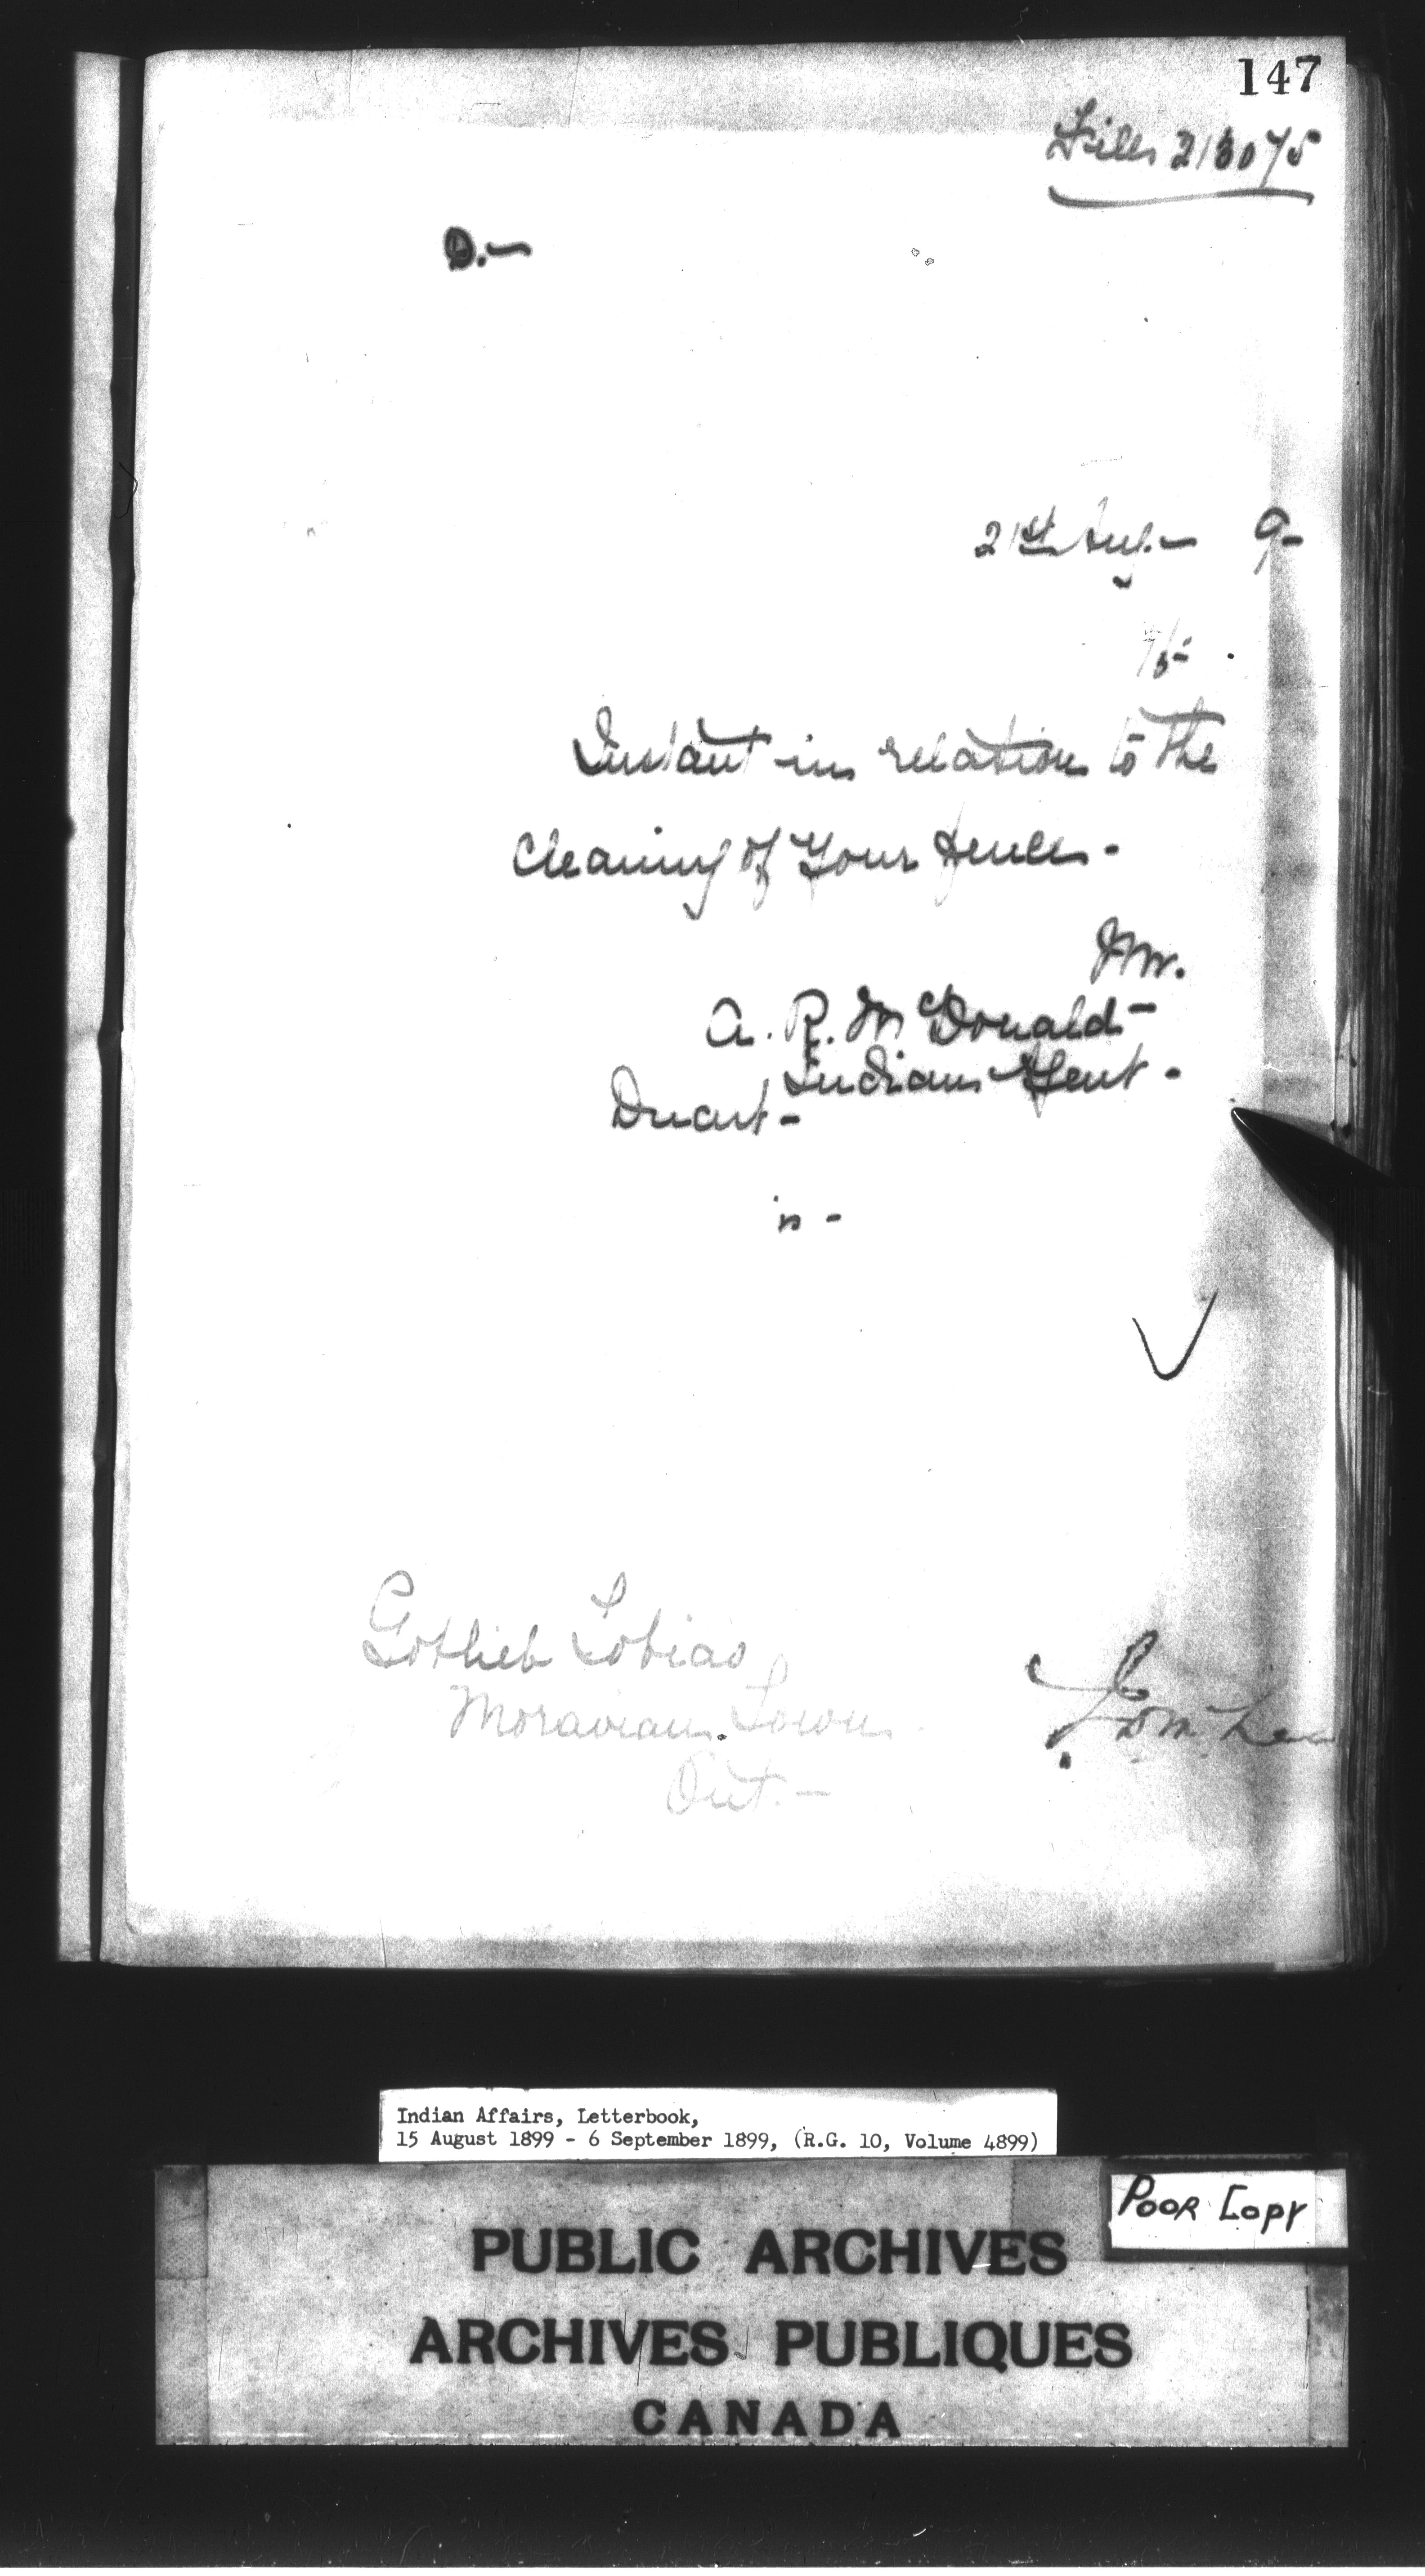 147
File 213075
D.-
21st Aug.- 9-
15-
Instant in relation to the
Cleaning of Your fence-
Mr.
A. R. McDonald-
Indian Agent-
Duart-
Gottlieb Tobias
Moravian Town
Ont.-
Indian Affairs, Letterbook,
15 August 1899 - 6 September 1899, (R.G. 10, Volume 4899)
POOR COPY
PUBLIC ARCHIVES
ARCHIVES PUBLIQUES
CANADA